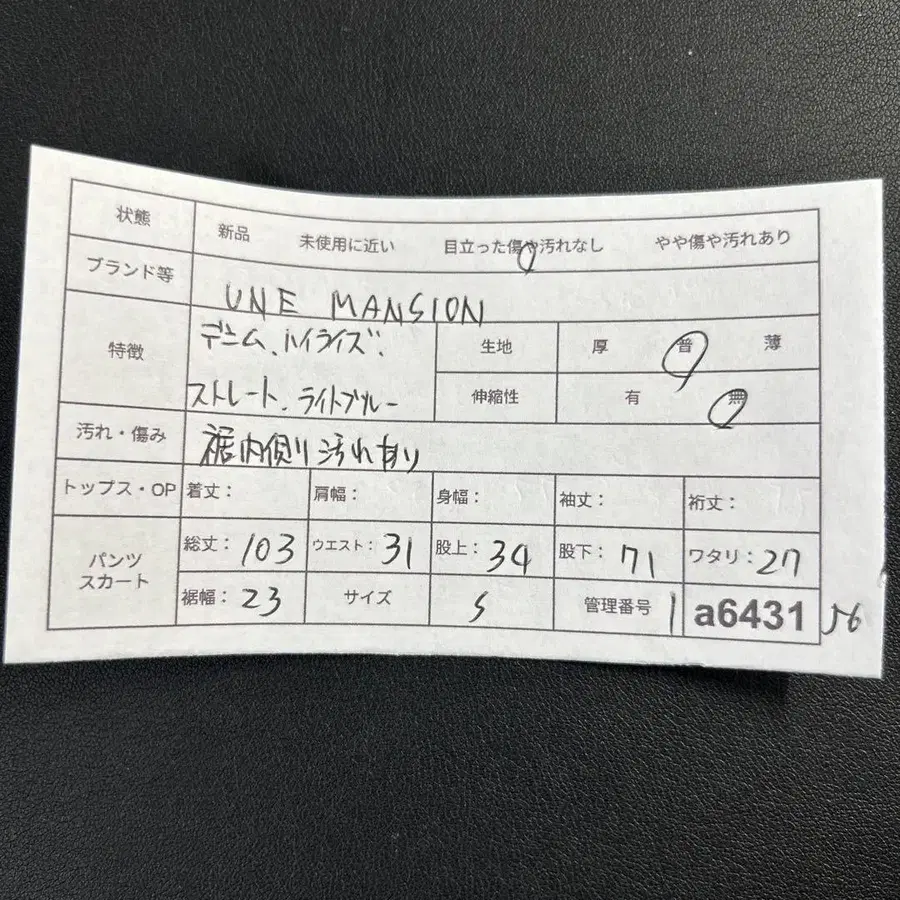 状態 新品 未使用に近い 目立った傷や汚れなし やや傷や汚れあり
ブランド等 UNE MANSION
特徴 デニム、ハイライズ、 生地 厚 普 薄
ストレート、ライトブルー 伸縮性 有 無
汚れ・傷み 裾内側汚れ有り
トップス・OP 着丈： 肩幅： 身幅： 袖丈： 裄丈：
パンツ 総丈：103 ウエスト：31 股上：34 股下：71 ワタリ：27
スカート 裾幅：23 サイズ S 管理番号 1 a6431 56